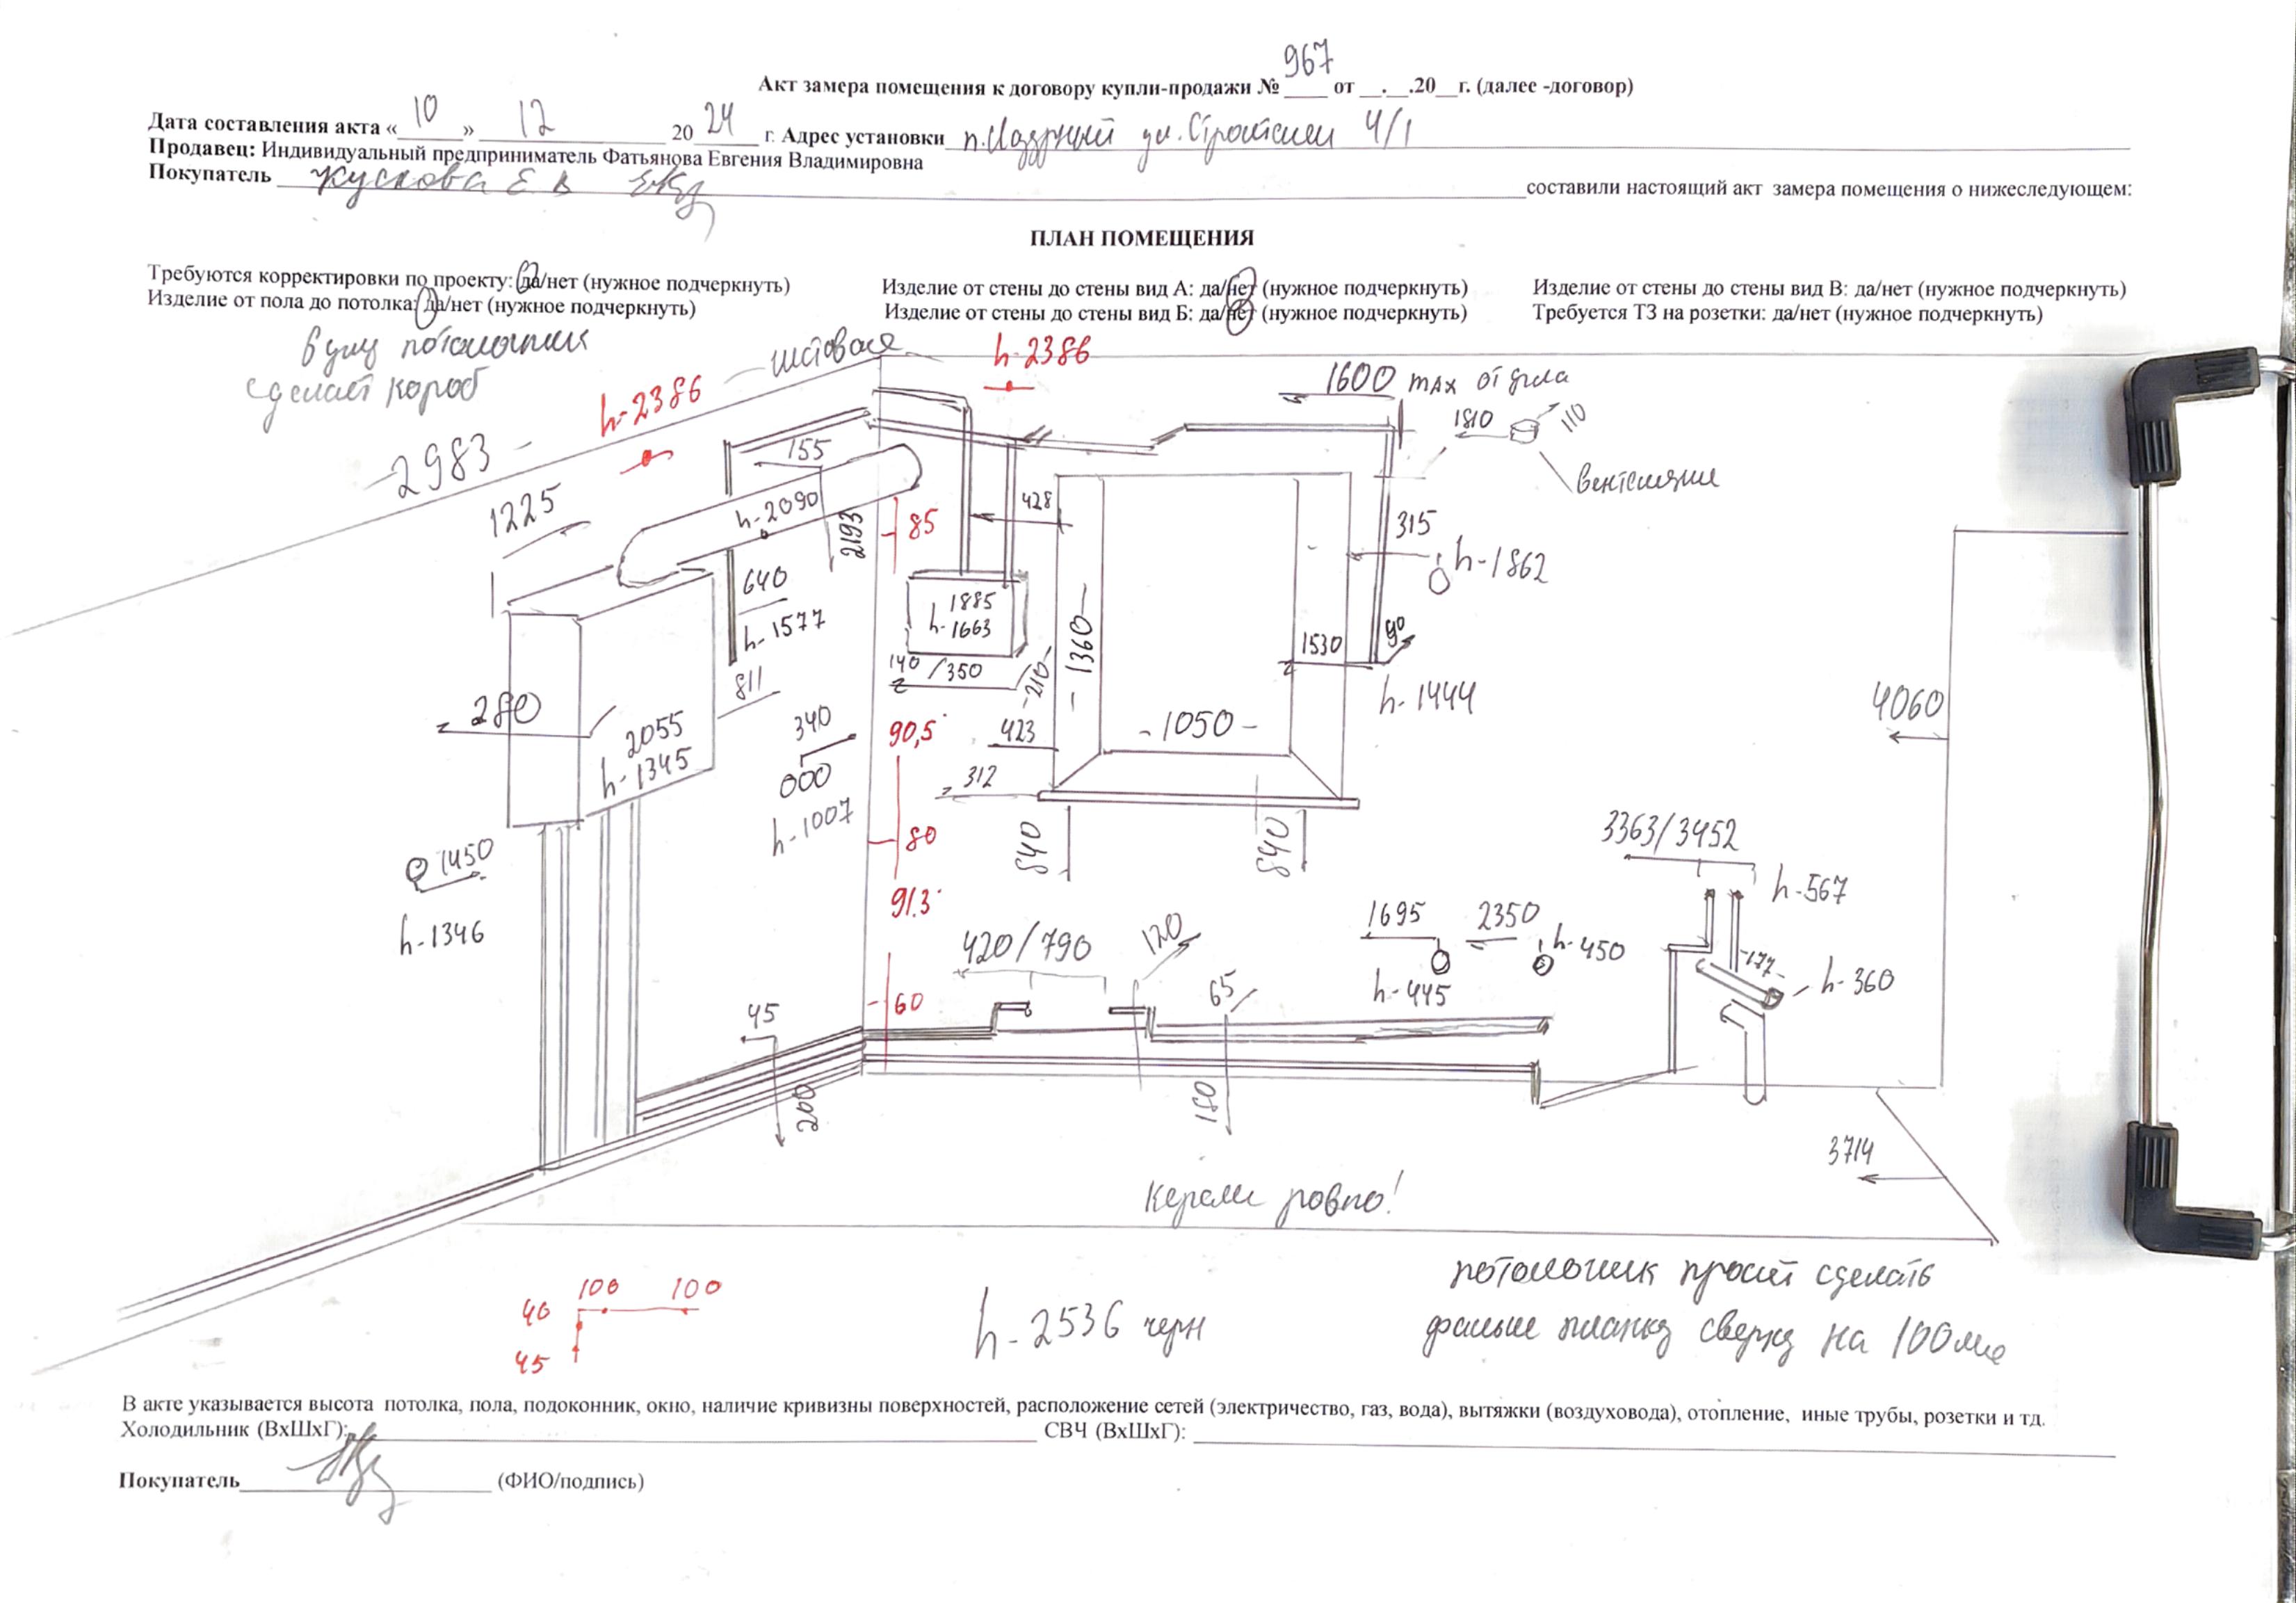 967
Акт замера помещения к договору купли-продажи № ____ от __.__.20__г. (далее -договор)
Дата составления акта « 10 » 12 20 24 г. Адрес установки п. ул. 4/1
Продавец: Индивидуальный предприниматель Фатьянова Евгения Владимировна
Покупатель Жускова Е В составили настоящий акт замера помещения о нижеследующем:
ПЛАН ПОМЕЩЕНИЯ
Требуются корректировки по проекту: да/нет (нужное подчеркнуть) Изделие от стены до стены вид А: да/нет (нужное подчеркнуть) Изделие от стены до стены вид В: да/нет (нужное подчеркнуть)
Изделие от пола до потолка: да/нет (нужное подчеркнуть) Изделие от стены до стены вид Б: да/нет (нужное подчеркнуть) Требуется ТЗ на розетки: да/нет (нужное подчеркнуть)
В углу потолочник
сделает короб
чистовая
h-2386
h-2386
1600 max от угла
1810
110
вентиляция
2983
1225
155
h-2090
2193
85
428
315
h-1862
640
h-1577
1885
h-1663
140/350
210
1360
1530
90
h-1444
811
280
2055
h-1345
340
000
h-1007
90,5°
423
1050
312
4060
1450
h-1346
80
840
840
3363/3452
h-567
91.3°
420/790
120
1695
2350
h-450
h-445
177
h-360
60
65
45
200
180
3714
Керели ровно!
100
100
40
45
h-2536 черн
потолочник просит сделать
фальш планку сверху на 100мм
В акте указывается высота потолка, пола, подоконник, окно, наличие кривизны поверхностей, расположение сетей (электричество, газ, вода), вытяжки (воздуховода), отопление, иные трубы, розетки и тд.
Холодильник (ВхШхГ): СВЧ (ВхШхГ):
Покупатель (ФИО/подпись)